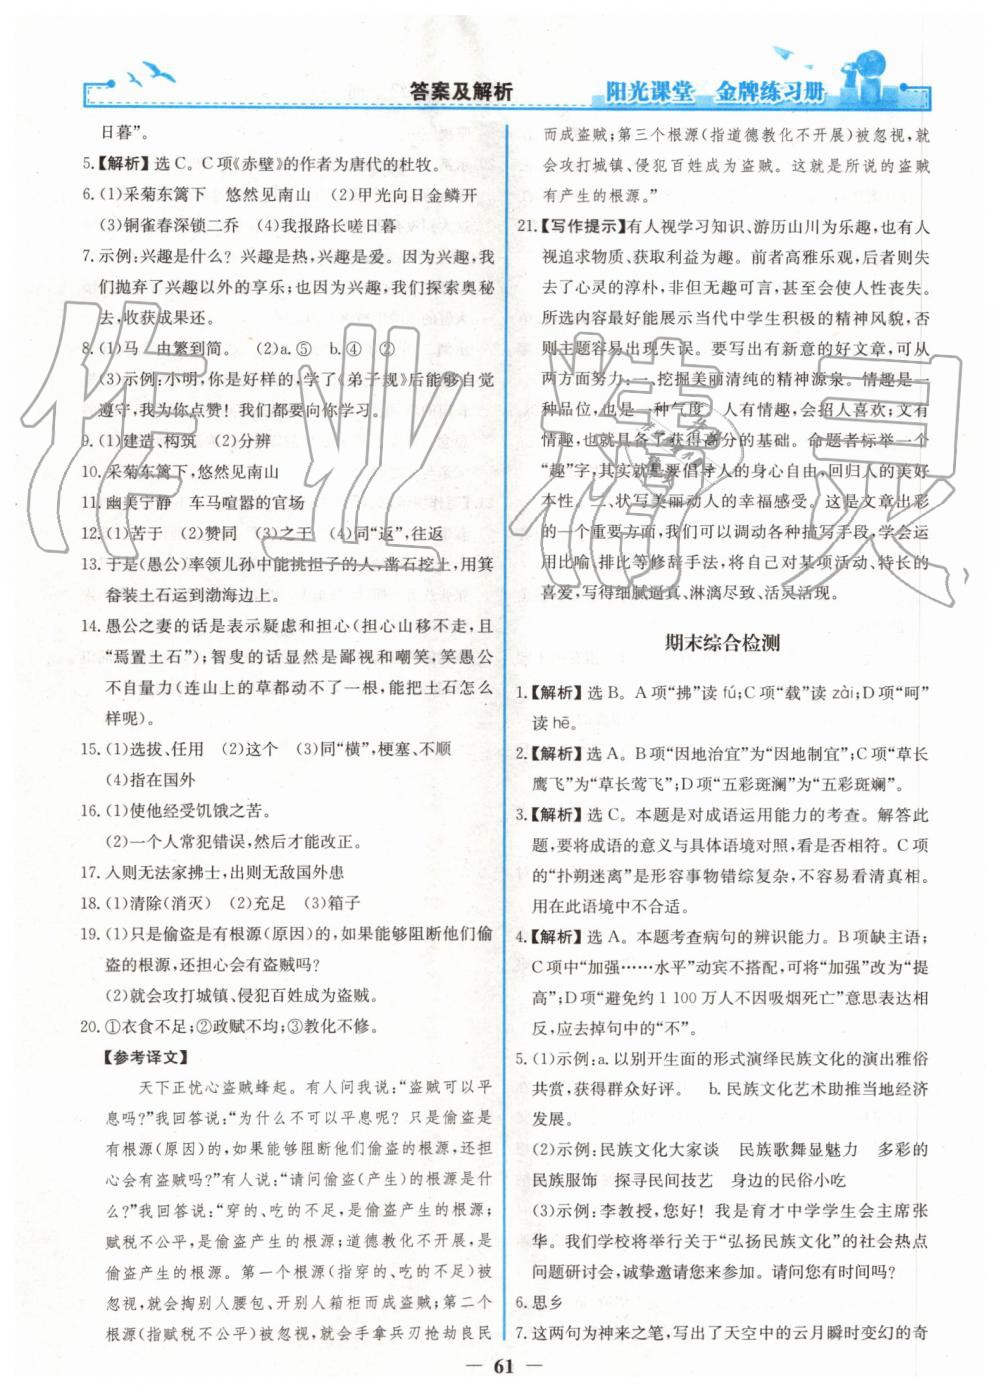 答案及解析
阳光课堂 金牌练习册
日暮”。
5.【解析】选C。C项《赤壁》的作者为唐代的杜牧。
6.(1)采菊东篱下 悠然见南山 (2)甲光向日金鳞开
(3)铜雀春深锁二乔 (4)我报路长嗟日暮
7.示例:兴趣是什么？兴趣是热,兴趣是爱。因为兴趣,我
们抛弃了兴趣以外的享乐;也因为兴趣,我们探索奥秘
去,收获成果还。
8.(1)马 由繁到简。 (2)a.⑤ b.④ ②
(3)示例:小明,你是好样的,学了《弟子规》后能够自觉
遵守,我为你点赞！我们都要向你学习。
9.(1)建造、构筑 (2)分辨
10.采菊东篱下,悠然见南山
11.幽美宁静 车马喧嚣的官场
12.(1)苦于 (2)赞同 (3)之于 (4)同“返”,往返
13.于是(愚公)率领儿孙中能挑担子的人,凿石挖土,用箕
畚装土石运到渤海边上。
14.愚公之妻的话是表示疑虑和担心(担心山移不走,且
“焉置土石”);智叟的话显然是鄙视和嘲笑,笑愚公
不自量力(连山上的草都动不了一根,能把土石怎么
样呢)。
15.(1)选拔、任用 (2)这个 (3)同“横”,梗塞、不顺
(4)指在国外
16.(1)使他经受饥饿之苦。
(2)一个人常犯错误,然后才能改正。
17.入则无法家拂士,出则无敌国外患
18.(1)清除(消灭) (2)充足 (3)箱子
19.(1)只是偷盗是有根源(原因)的,如果能够阻断他们偷
盗的根源,还担心会有盗贼吗?
(2)就会攻打城镇、侵犯百姓成为盗贼。
20.①衣食不足;②政赋不均;③教化不修。
【参考译文】
天下正忧心盗贼蜂起。有人问我说:“盗贼可以平
息吗?”我回答说:“为什么不可以平息呢?只是偷盗是
有根源(原因)的,如果能够阻断他们偷盗的根源,还担
心会有盗贼吗?”有人说:“请问偷盗(产生)的根源是什
么?”我回答说:“穿的、吃的不足,是偷盗产生的根源;
赋税不公平,是偷盗产生的根源;道德教化不开展,是
偷盗产生的根源。第一个根源(指穿的、吃的不足)被
忽视,就会掏别人腰包、开别人箱柜而成盗贼;第二个
根源(指赋税不公平)被忽视,就会手拿兵刃抢劫良民
而成盗贼;第三个根源(指道德教化不开展)被忽视,就
会攻打城镇、侵犯百姓成为盗贼。这就是所说的盗贼
有产生的根源。”
21.【写作提示】有人视学习知识、游历山川为乐趣,也有人
视追求物质、获取利益为趣。前者高雅乐观,后者已失
去了心灵的淳朴,非但无趣可言,甚至会使人性丧失。
所选内容最好能展示当代中学生积极的精神风貌,否
则主题容易出现失误。要写出有新意的好文章,可从
两方面努力:一、挖掘美丽清纯的精神源泉。情趣是一
种品位,也是一种气度。人有情趣,会招人喜欢;文有
情趣,也就具备了获得高分的基础。命题者标举一个
“趣”字,其实就是要倡导人的身心自由,回归人的美好
本性。二、状写美丽动人的幸福感受。这是文章出彩
的一个重要方面,我们可以调动各种描写手段,学会运
用比喻、排比等修辞手法,将自己对某项活动、特长的
喜爱,写得细腻逼真、淋漓尽致、活灵活现。
期末综合检测
1.【解析】选B。A项“拂”读fú;C项“载”读zài;D项“呵”
读hē。
2.【解析】选A。B项“因地治宜”为“因地制宜”;C项“草长
鹰飞”为“草长莺飞”;D项“五彩斑澜”为“五彩斑斓”。
3.【解析】选C。本题是对成语运用能力的考查。解答此
题,要将成语的意义与具体语境对照,看是否相符。C项
的“扑朔迷离”是形容事物错综复杂,不容易看清真相。
用在此语境中不合适。
4.【解析】选A。本题考查病句的辨识能力。B项缺主语;
C项中“加强……水平”动宾不搭配,可将“加强”改为“提
高”;D项“避免约1 100万人不因吸烟死亡”意思表达相
反,应去掉句中的“不”。
5.(1)示例:a.以别开生面的形式演绎民族文化的演出雅俗
共赏,获得群众好评。 b.民族文化艺术助推当地经济
发展。
(2)示例:民族文化大家谈 民族歌舞显魅力 多彩的
民族服饰 探寻民间技艺 身边的民俗小吃
(3)示例:李教授,您好！我是育才中学学生会主席张
华。我们学校将举行关于“弘扬民族文化”的社会热点
问题研讨会,诚挚邀请您来参加。请问您有时间吗?
6.思乡
7.这两句为神来之笔,写出了天空中的云月瞬时变幻的奇
— 61 —
作业精灵